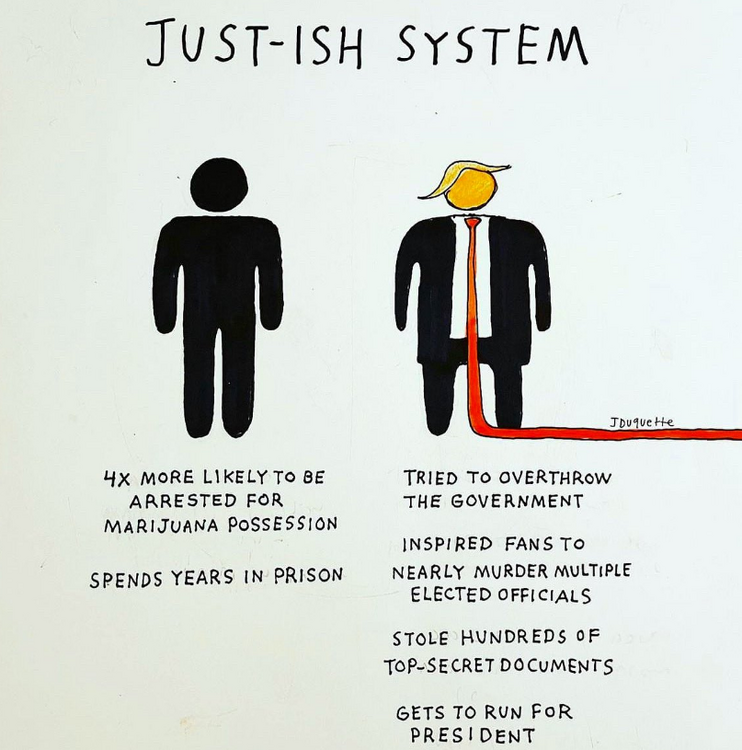 JUST-ISH SYSTEM
JDuquette
4X MORE LIKELY TO BE
ARRESTED FOR
MARIJUANA POSSESSION
SPENDS YEARS IN PRISON
TRIED TO OVERTHROW
THE GOVERNMENT
INSPIRED FANS TO
NEARLY MURDER MULTIPLE
ELECTED OFFICIALS
STOLE HUNDREDS OF
TOP-SECRET DOCUMENTS
GETS TO RUN FOR
PRESIDENT